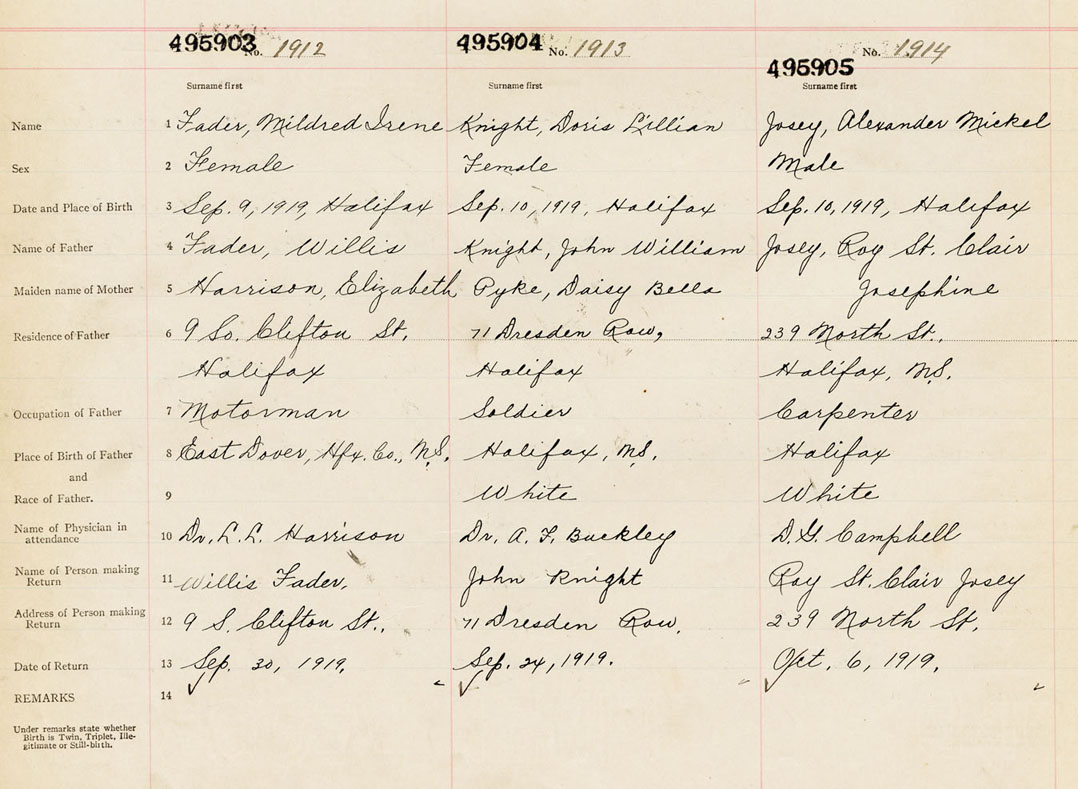 495903 No. 1912 495904 No. 1913 No. 1914
495905
Surname first Surname first Surname first
Name 1 Fader, Mildred Irene Knight, Doris Lillian Josey, Alexander Mickel
Sex 2 Female Female Male
Date and Place of Birth 3 Sep. 9, 1919, Halifax Sep. 10, 1919, Halifax Sep. 10, 1919, Halifax
Name of Father 4 Fader, Willis Knight, John William Josey, Roy St. Clair
Maiden name of Mother 5 Harrison, Elizabeth Pyke, Daisy Bella Josephine
Residence of Father 6 9 So. Clifton St. 71 Dresden Row, 239 North St.,
Halifax Halifax Halifax, N.S.
Occupation of Father 7 Motorman Soldier Carpenter
Place of Birth of Father 8 East Dover, Hfx. Co., N.S. Halifax, N.S. Halifax
and
Race of Father. 9 White White
Name of Physician in
attendance 10 Dr. L. L. Harrison Dr. A. F. Buckley D. G. Campbell
Name of Person making
Return 11 Willis Fader, John Knight Roy St. Clair Josey
Address of Person making
Return 12 9 S. Clifton St., 71 Dresden Row, 239 North St.
Date of Return 13 Sep. 30, 1919. Sep. 24, 1919. Oct. 6, 1919.
REMARKS 14
Under remarks state whether
Birth is Twin, Triplet, Ille-
gitimate or Still-birth.